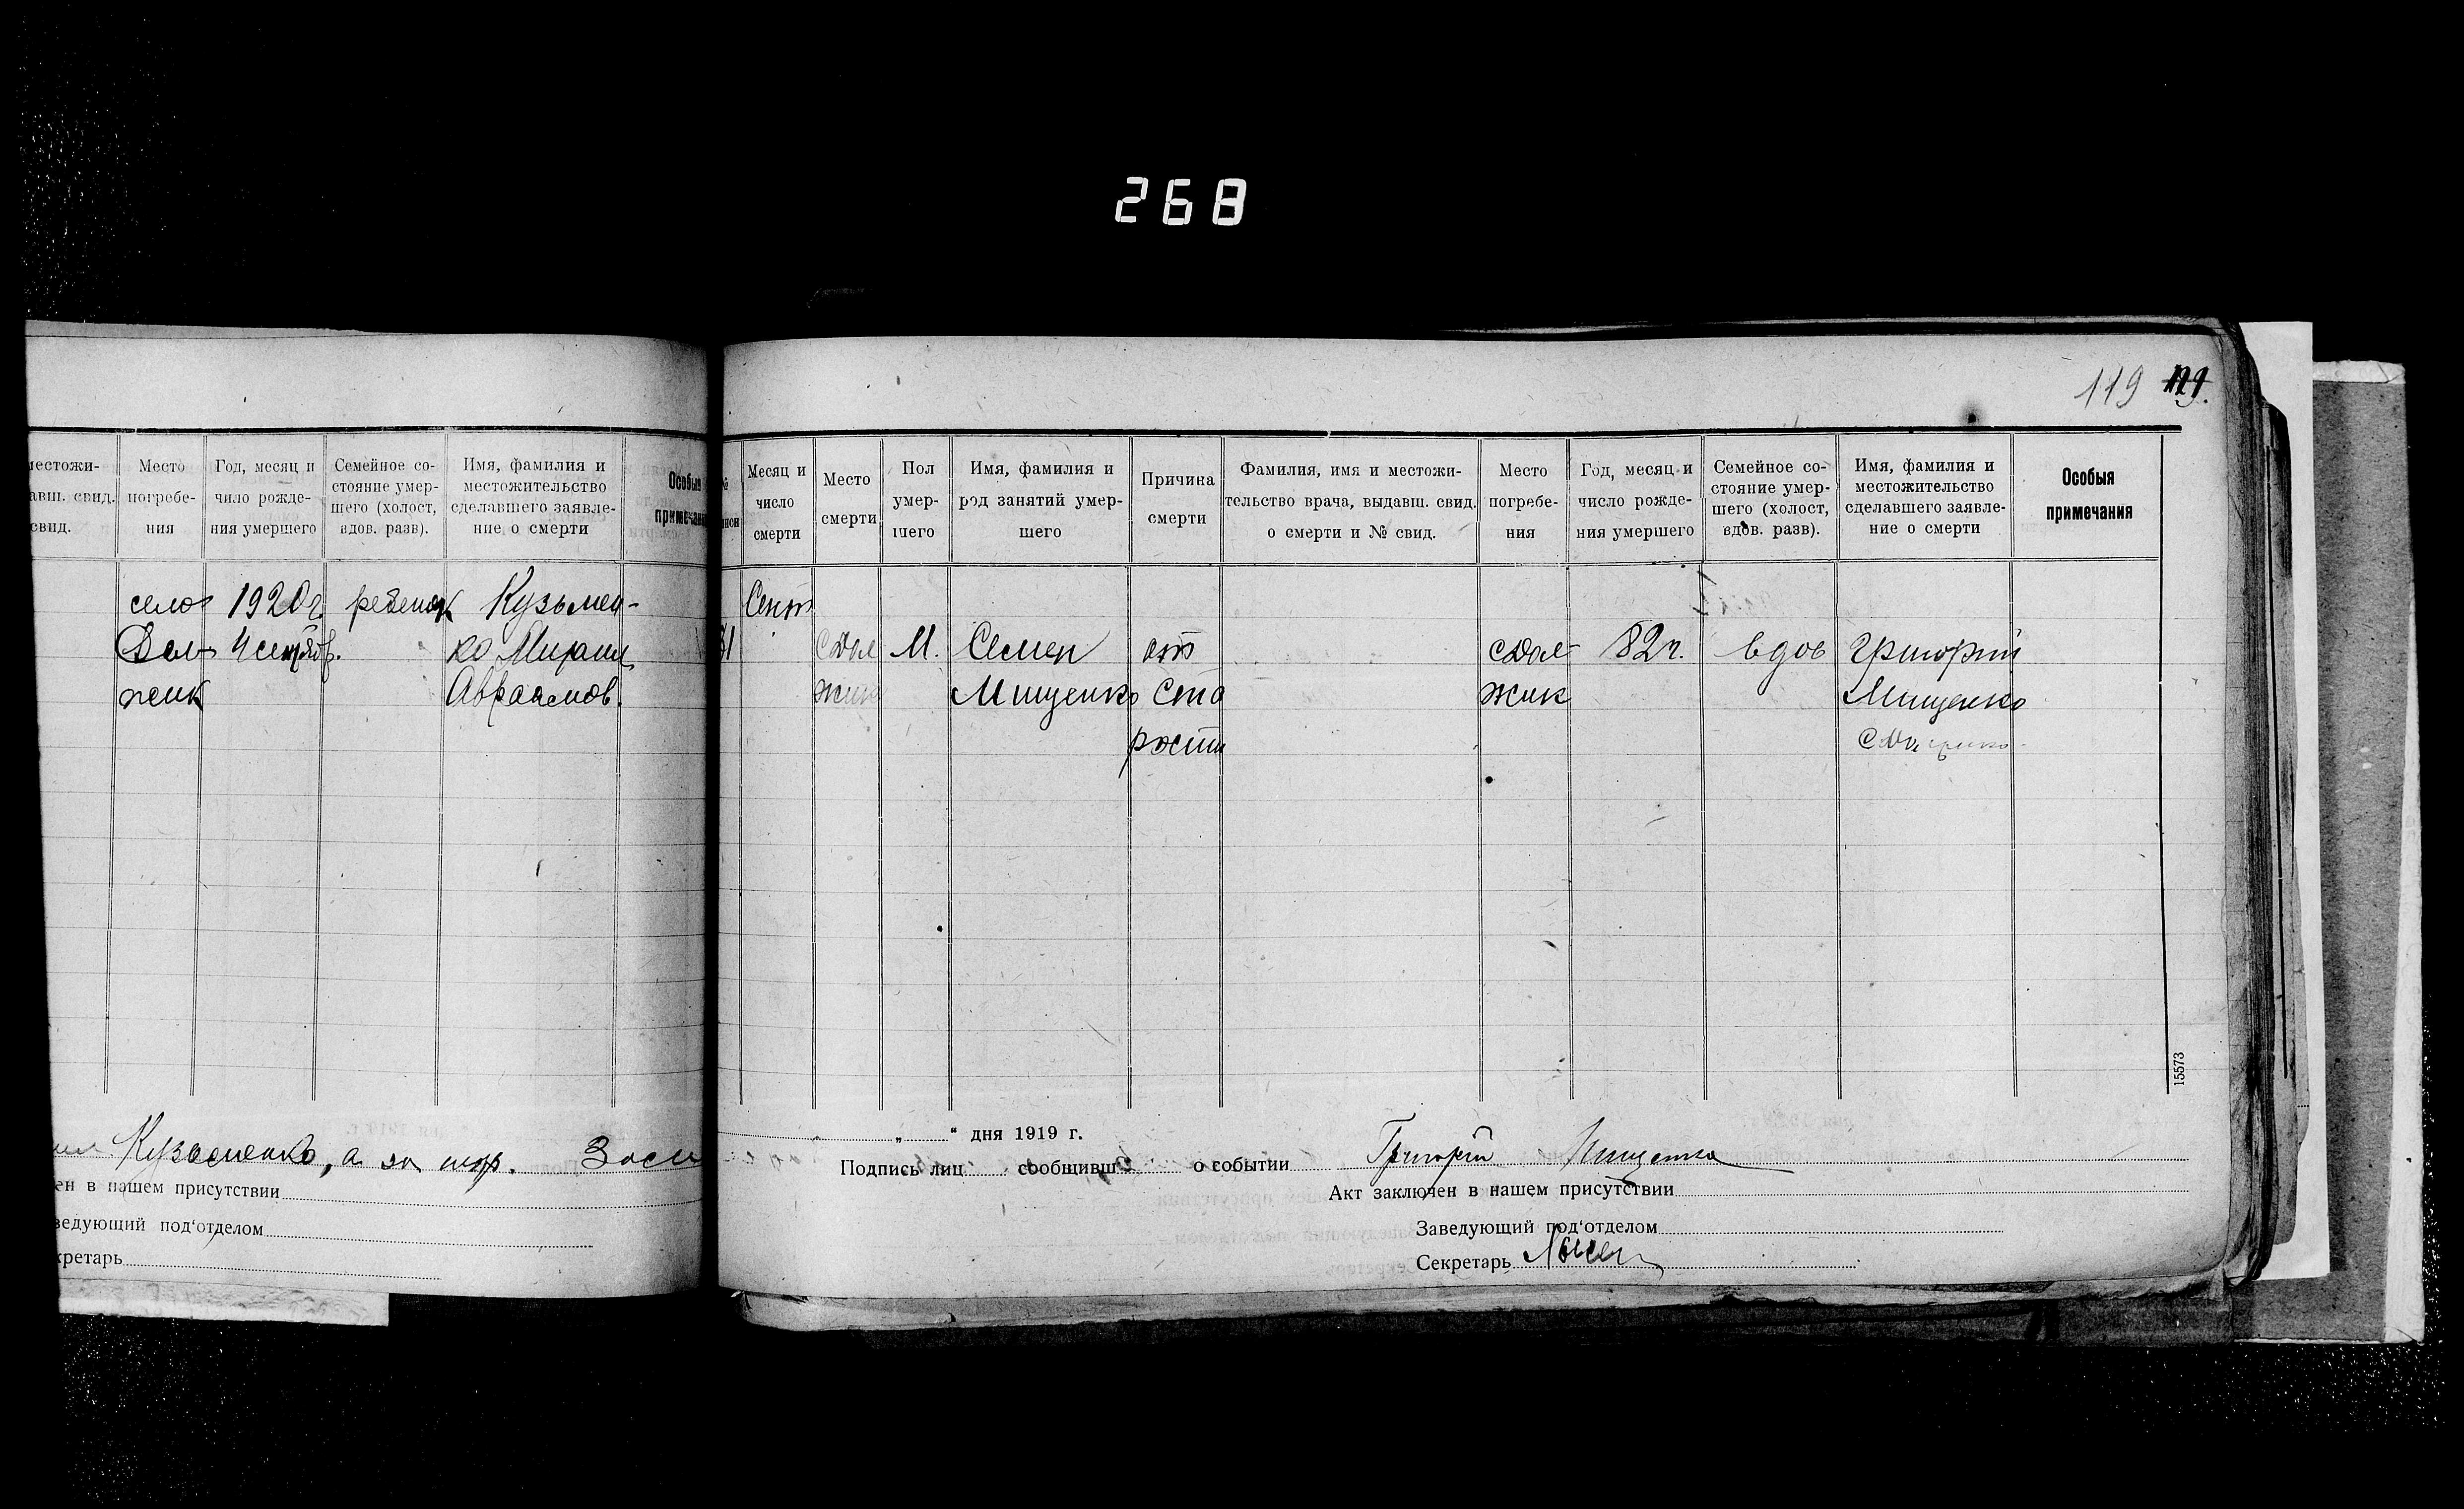 268
119 121.
местожи-
авш. свид.
свид.
Место
погребе-
ния
Год, месяц и
чило рожде-
ния умершего
Семейное со-
стояние умер-
шего (холост,
вдов. разв).
Имя, фамилия и
местожительство
сделавшего заявле-
ние о смерти
Особыя
примечания
село
Дол-
жик
1920 г.
4 сентяб.
ребенок
Кузьмен-
ко Михаил
Авраамов.
Кузьменко, а за
ен в нашем присутствии
ведующий под‘отделом
кретарь
№
писи
Месяц и
число
смерти
Место
смерти
Пол
умер-
шего
Имя, фамилия и
род занятий умер-
шего
Причина
смерти
Фамилия, имя и местожи-
тельство врача, выдавш. свид.
о смерти и № свид.
Место
погребе-
ния
Год, месяц и
число рожде-
ния умершего
Семейное со-
стояние умер-
шего (холост,
вдов. разв).
Имя, фамилия и
местожительство
сделавшего заявле-
ние о смерти
Особыя
примечания
Сент
с Дол
жик
М.
Семен
Мищенко
от
ста
рости
с Дол-
жик
82 г.
вдов
Григорий
Мищенко
15573
„ “ дня 1919 г.
Подпись лиц сообщивш о событии Григорий Мищенко
Акт заключен в нашем присутствии
Заведующий под‘отделом
Секретарь